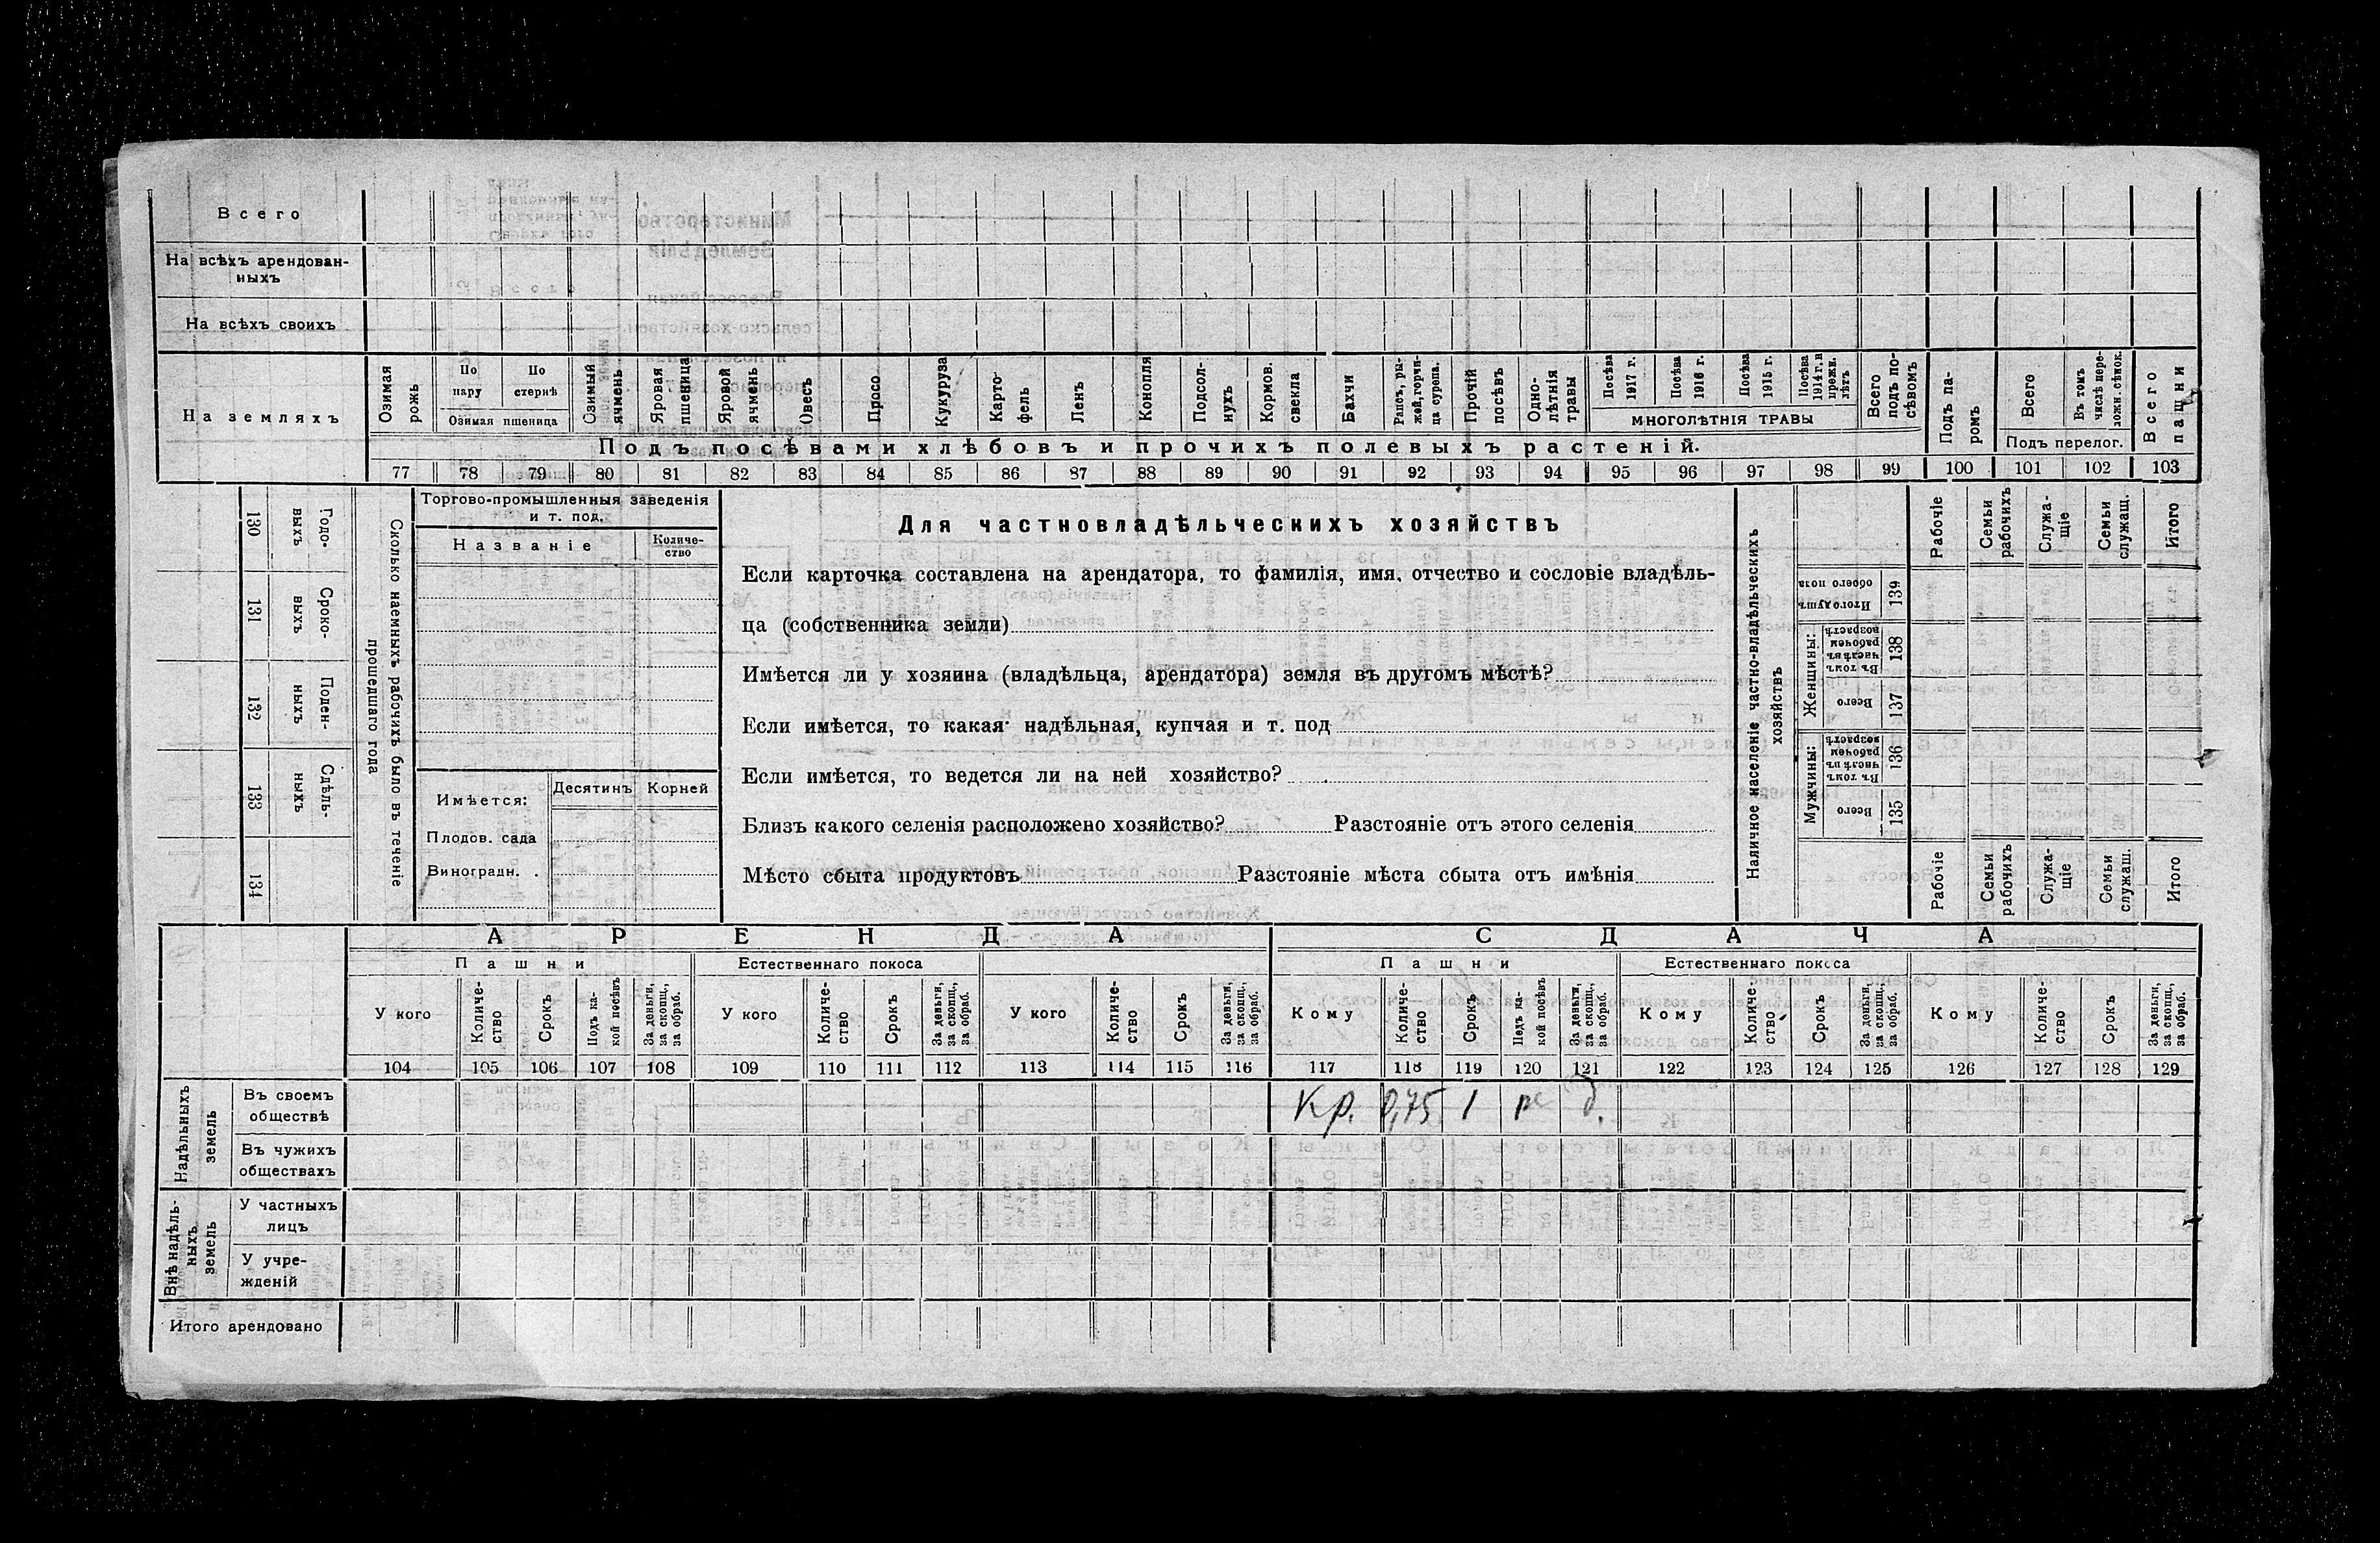 Всего
На всѣхъ арендован-
ныхъ
На всѣхъ своихъ
На земляхъ
Озимая рожь
По пару
По стернѣ
Озимая пшеница
Озимый ячмень
Яровая пшеница
Яровой ячмень
Овесъ
Просо
Кукуруза
Карто-
фель
Ленъ
Конопля
Подсол-
нухъ
Кормов.
свекла
Бахчи
Рапсъ, ры-
жей, горчи-
ца сурепа.
Прочій
посѣвъ
Одно-
лѣтнія
травы
Посѣва
1917 г.
Посѣва
1916 г.
Посѣва
1915 г.
Посѣва
1914 г. и
прежн.
лѣтъ
МНОГОЛѢТНІЯ ТРАВЫ
Всего
подъ по-
сѣвомъ
Подъ па-
ромъ
Всего
Въ томъ
числѣ пере-
ложн. сѣнок.
Подъ перелог.
Всего
пашни
Подъ посѣвами хлѣбовъ и прочихъ полевыхъ растеній.
77 78 79 80 81 82 83 84 85 86 87 88 89 90 91 92 93 94 95 96 97 98 99 100 101 102 103
130
Годо-
выхъ
131
Сроко-
выхъ
132
Поден-
ныхъ
133
Сдѣль-
ныхъ
134
Сколько наемныхъ рабочихъ было въ теченіе
прошедшаго года
Торгово-промышленныя заведенія
и т. под.
Названіе
Количе-
ство
Имѣется:
Десятинъ
Корней
Плодов. сада
Виноградн. .
Для частновладѣльческихъ хозяйствъ
Если карточка составлена на арендатора, то фамилія, имя, отчество и сословіе владѣль-
ца (собственника земли)
Имѣется ли у хозяина (владѣльца, арендатора) земля въ другомъ мѣстѣ?
Если имѣется, то какая: надѣльная, купчая и т. под
Если имѣется, то ведется ли на ней хозяйство?
Близъ какого селенія расположено хозяйство? Разстояніе отъ этого селенія
Мѣсто сбыта продуктовъ Разстояніе мѣста сбыта отъ имѣнія
Наличное населеніе частно-владѣльческихъ
хозяйствъ
Рабочіе
Семьи
рабочихъ
Служа-
щіе
Семьи
служащ.
Итого
Итого душъ
обоего пола
139
Женщины:
Въ томъ
числѣ въ
рабочемъ
возрастѣ
138
Всего
137
Мужчины:
Въ томъ
числѣ въ
рабочемъ
возрастѣ
136
Всего
135
Рабочіе
Семьи
рабочихъ
Служа-
щіе
Семьи
служащ.
Итого
АРЕНДА
СДАЧА
Пашни
Естественнаго покоса
Пашни
Естественнаго покоса
У кого
Количе-
ство
Срокъ
Подъ ка-
кой посѣвъ
За деньги,
за скопщ.,
за обраб.
У кого
Количе-
ство
Срокъ
За деньги,
за скопщ.,
за обраб.
У кого
Количе-
ство
Срокъ
За деньги,
за скопщ.,
за обраб.
Кому
Количе-
ство
Срокъ
Подъ ка-
кой посѣвъ
За деньги,
за скопщ.,
за обраб.
Кому
Количе-
ство
Срокъ
За деньги,
за скопщ.,
за обраб.
Кому
Количе-
ство
Срокъ
За деньги,
за скопщ.,
за обраб.
104 105 106 107 108 109 110 111 112 113 114 115 116 117 118 119 120 121 122 123 124 125 126 127 128 129
Надѣльныхъ
земель
Въ своемъ
обществѣ
Кр. 0,75 1 д.
Въ чужихъ
обществахъ
Внѣ надѣль-
ныхъ
земель
У частныхъ
лицъ
У учре-
жденій
Итого арендовано